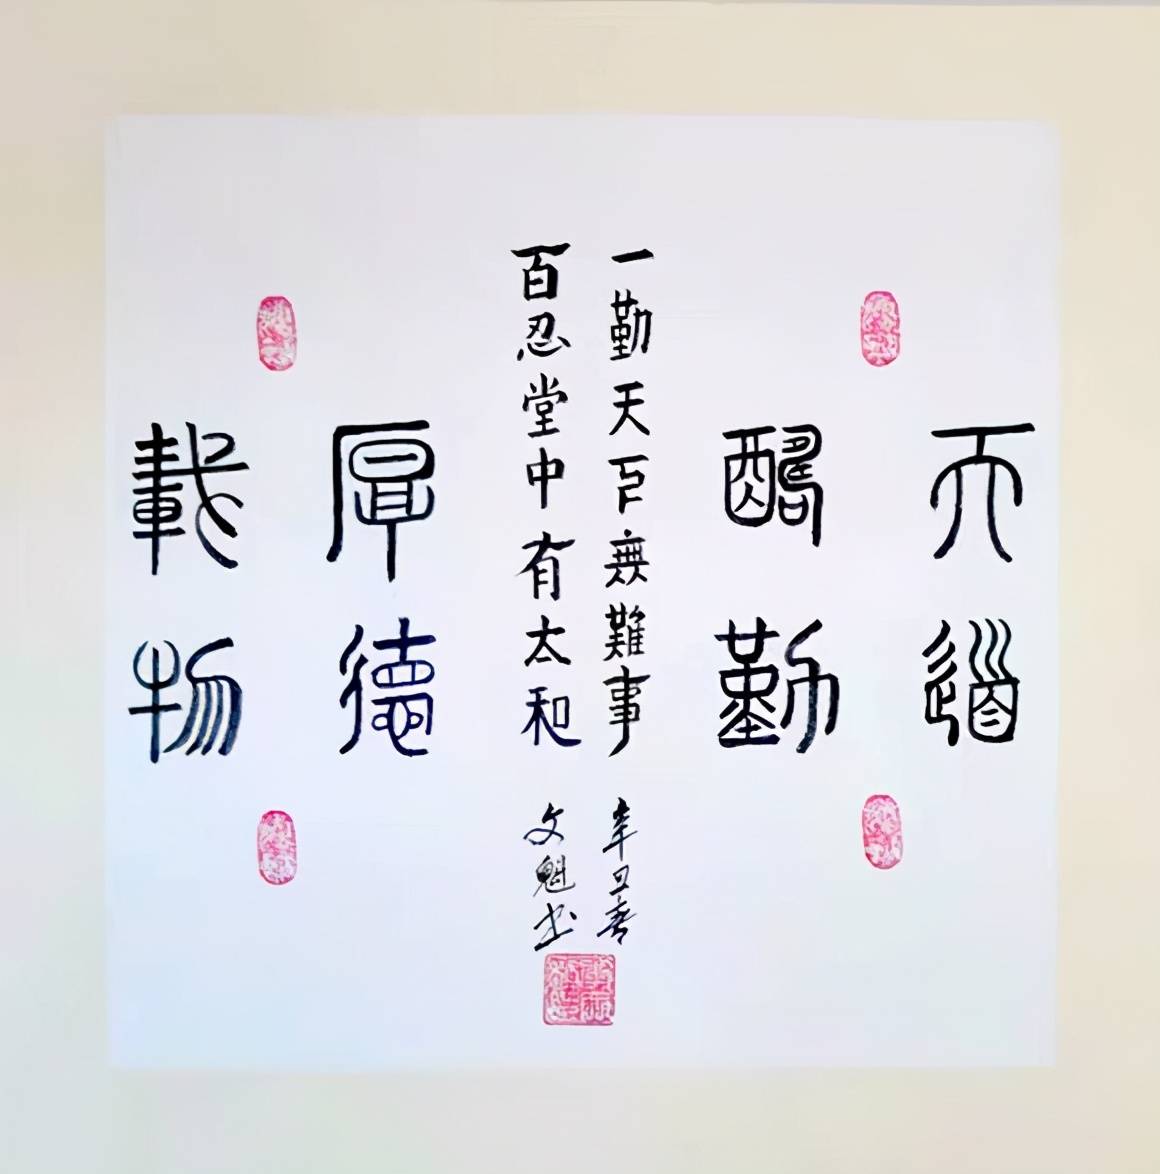 天道
酬勤
一勤天下無難事 辛丑春
百忍堂中有太和 文魁书
厚德
載物